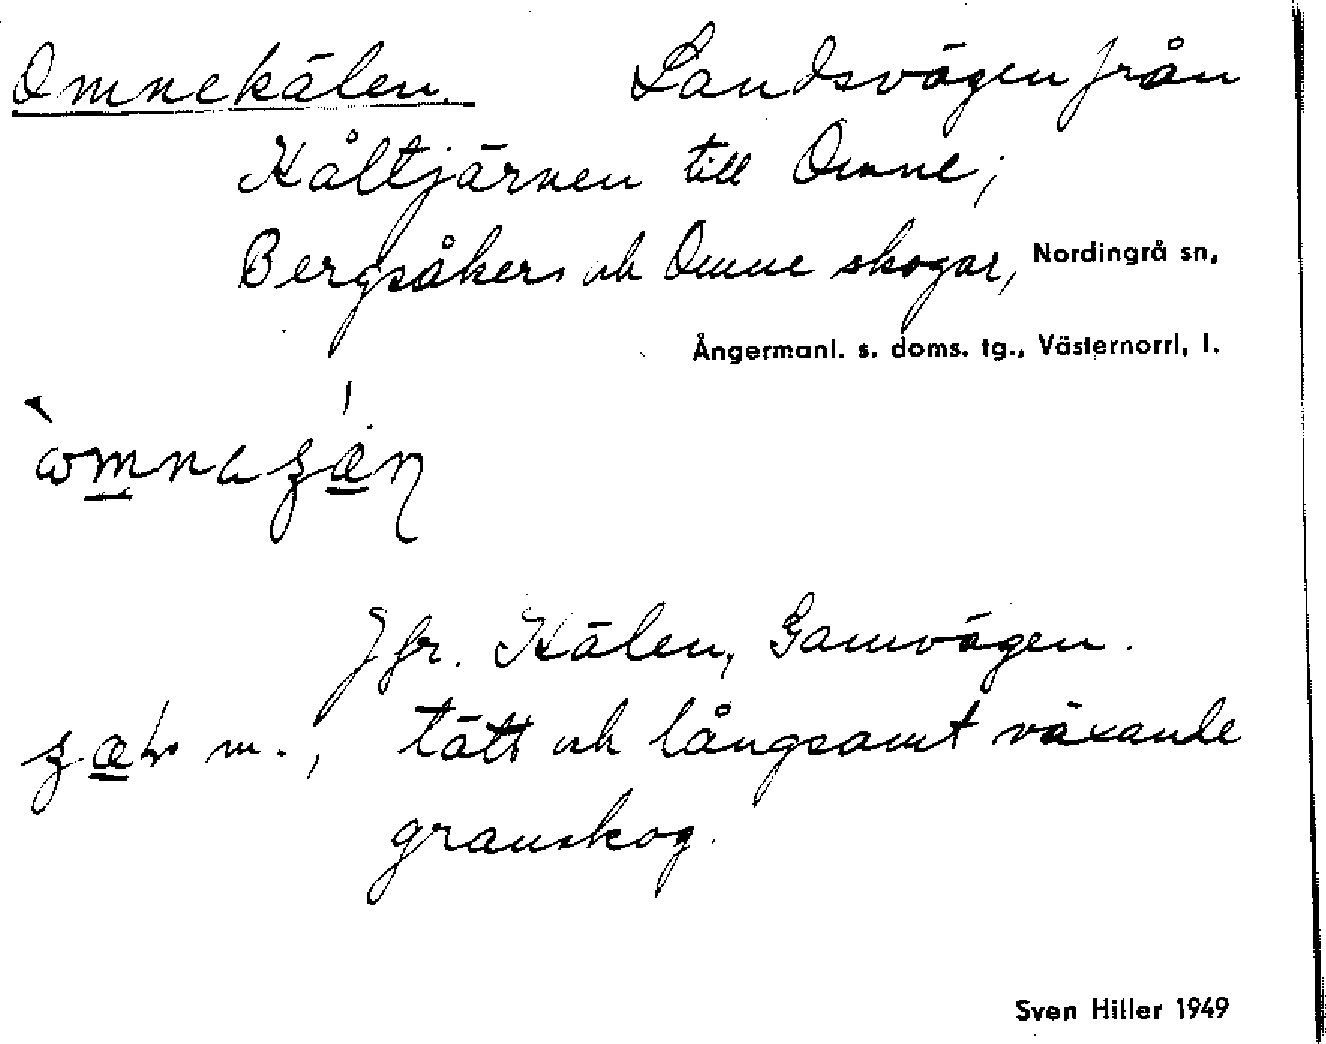 Omnekälen. Landsvägen från
Håltjärnen till Omne;
Bergsåkers och Omne skogar, Nordingrå sn,
Ångermanl. s. doms. tg., Västernorrl. l.
Jfr. Kälen, Gamvägen.
m., tätt och långsamt växande
granskog.
Sven Hiller 1949